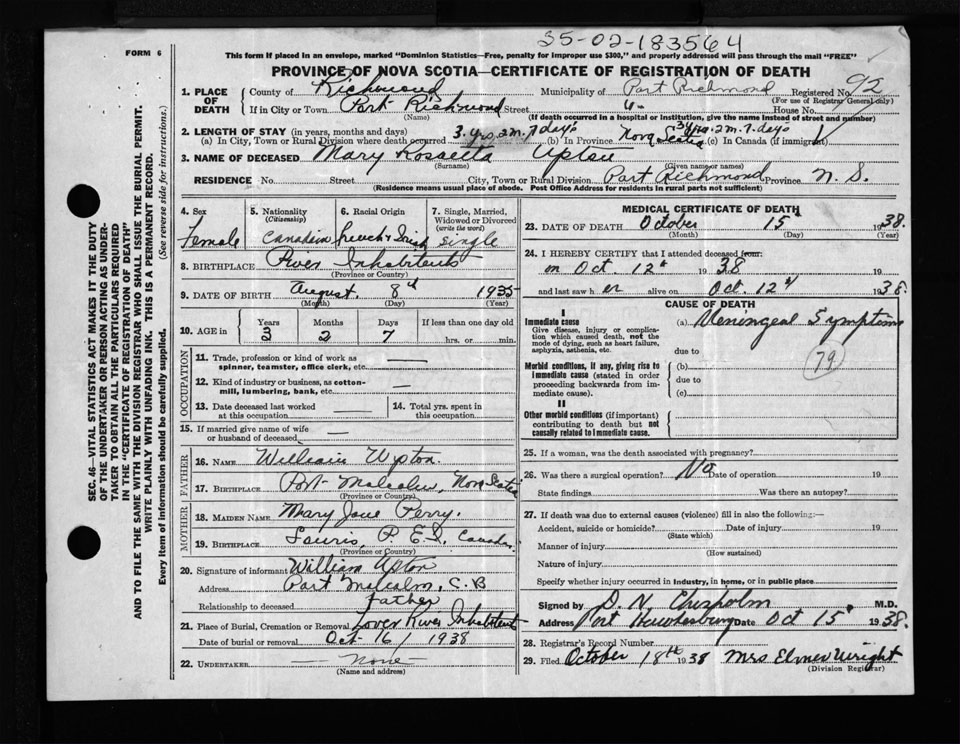 35-02-183564
FORM 6
This form if placed in an envelope, marked "Dominion Statistics—Free, penalty for improper use $300," and properly addressed will pass through the mail "FREE"
PROVINCE OF NOVA SCOTIA—CERTIFICATE OF REGISTRATION OF DEATH
SEC. 46—VITAL STATISTICS ACT MAKES IT THE DUTY
OF THE UNDERTAKER OR PERSON ACTING AS UNDER-
TAKER TO OBTAIN ALL THE PARTICULARS REQUIRED
IN THE "CERTIFICATE OF REGISTRATION OF DEATH"
AND TO FILE THE SAME WITH THE DIVISION REGISTRAR WHO SHALL ISSUE THE BURIAL PERMIT.
WRITE PLAINLY WITH UNFADING INK. THIS IS A PERMANENT RECORD.
Every item of information should be carefully supplied. (See reverse side for instructions.)
1. PLACE OF DEATH County of Richmond Municipality of Port Richmond Registered No. 92
(For use of Registrar General only)
If in City or Town Port Richmond Street House No.
(Name) (If death occurred in a hospital or institution, give the name instead of street and number)
2. LENGTH OF STAY (in years, months and days)
(a) In City, Town or Rural Division where death occurred 3 yrs. 2 m. 7 days (b) In Province Nova Scotia 3 yrs. 2 m. 7 days (c) In Canada (if immigrant)
3. NAME OF DECEASED Mary Rossetta Upton
(Surname) (Given name or names)
RESIDENCE No. Street City, Town or Rural Division Port Richmond Province N. S.
(Residence means usual place of abode. Post Office Address for residents in rural parts not sufficient)
4. Sex 5. Nationality (Citizenship) 6. Racial Origin 7. Single, Married, Widowed or Divorced (write the word)
Female Canadian French & Irish Single
8. BIRTHPLACE River Inhabitents
(Province or Country)
9. DATE OF BIRTH August 8th 1935
(Month) (Day) (Year)
10. AGE in Years Months Days If less than one day old
3 2 7 hrs. or min.
OCCUPATION
11. Trade, profession or kind of work as spinner, teamster, office clerk, etc. —
12. Kind of industry or business, as cotton-mill, lumbering, bank, etc. —
13. Date deceased last worked at this occupation — 14. Total yrs. spent in this occupation
15. If married give name of wife or husband of deceased —
FATHER
16. NAME William Upton.
17. BIRTHPLACE Port Malcolm, Nova Scotia
(Province or Country)
MOTHER
18. MAIDEN NAME Mary Jane Perry.
19. BIRTHPLACE Souris, P. E. I, Canada.
(Province or Country)
20. Signature of informant William Upton
Address Port Malcolm, C. B
Relationship to deceased father
21. Place of Burial, Cremation or Removal Lower River Inhabitent
Date of burial or removal Oct 16/ 1938
22. UNDERTAKER — None —
(Name and address)
MEDICAL CERTIFICATE OF DEATH
23. DATE OF DEATH October 15 1938.
(Month) (Day) (Year)
24. I HEREBY CERTIFY that I attended deceased from:
on Oct. 12th 1938 19
and last saw her alive on Oct. 12th 1938.
CAUSE OF DEATH
I
Immediate cause
Give disease, injury or complication which caused death, not the mode of dying, such as heart failure, asphyxia, asthenia, etc.
(a) Meningeal Symptoms
due to
79
Morbid conditions, if any, giving rise to immediate cause (stated in order proceeding backwards from immediate cause).
(b)
due to
(c)
II
Other morbid conditions (if important) contributing to death but not causally related to immediate cause.
25. If a woman, was the death associated with pregnancy?
26. Was there a surgical operation? No Date of operation 19
State findings Was there an autopsy?
27. If death was due to external causes (violence) fill in also the following:—
Accident, suicide or homicide? Date of injury 19
(State which)
Manner of injury
(How sustained)
Nature of injury
Specify whether injury occurred in industry, in home, or in public place
Signed by D. N. Chisholm M.D.
Address Port Hawkesbury Date Oct 15 1938.
28. Registrar's Record Number
29. Filed October 18th 1938 Mrs Elmer Wright
(Division Registrar)